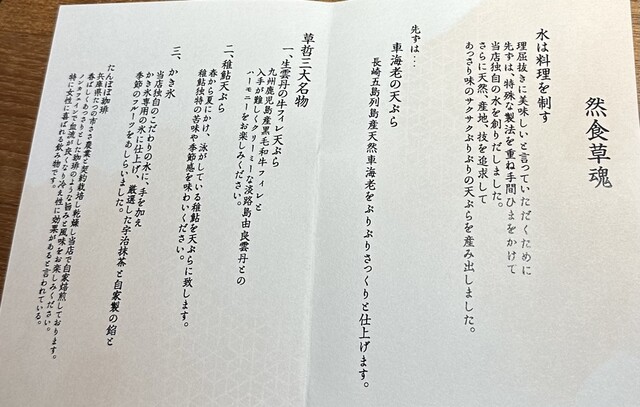 然食草魂
水は料理を制す
理屈抜きに美味しいと言っていただくために
先ずは、特殊な製法を重ね手間ひまをかけて
当店独自の水を創りだしました。
さらに天然、産地、技を追求して
あっさり味のサクサクぷりぷりの天ぷらを産み出しました。
先ずは…
車海老の天ぷら
長崎五島列島産天然車海老をぷりぷりさっくりと仕上げます。
草哲三大名物
一、生雲丹の牛フィレ天ぷら
九州鹿児島産黒毛和牛フィレと
入手が難しくクリーミーな淡路島由良雲丹との
ハーモニーをお楽しみください。
二、稚鮎天ぷら
春から夏にかけ、泳がしている稚鮎を天ぷらに致します。
稚鮎独特の苦味や季節感を味わいください。
三、かき氷
当店独自のこだわりの水に、手を加え
かき氷専用の氷に仕上げ、厳選した宇治抹茶と自家製の餡と
季節のフルーツをあしらいました。
たんぽぽ珈琲
兵庫県たつの市ささ農業と契約栽培し乾燥し当店で自家焙煎しております。
香ばしくあっさりとした珈琲のような旨みと風味をお楽しみください。
ノンカフェインで血流が良くなり冷え性に効果があると言われている。
特に女性に喜ばれる飲み物です。